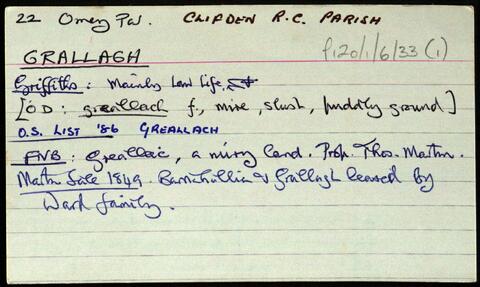 22 Omey Par. CLIFDEN R.C. PARISH
p120/1/6/33 (1)
GRALLAGH
Griffiths: Mainly Law Life,
[OD: greallach f., mire, slush, puddly ground]
O.S. LIST '86 GREALLACH
FNB: Greallac, a miry land. Prop. Thos. Martin.
Martin Sale 1849. Barrahallia & Grallagh leased by
Ward family.